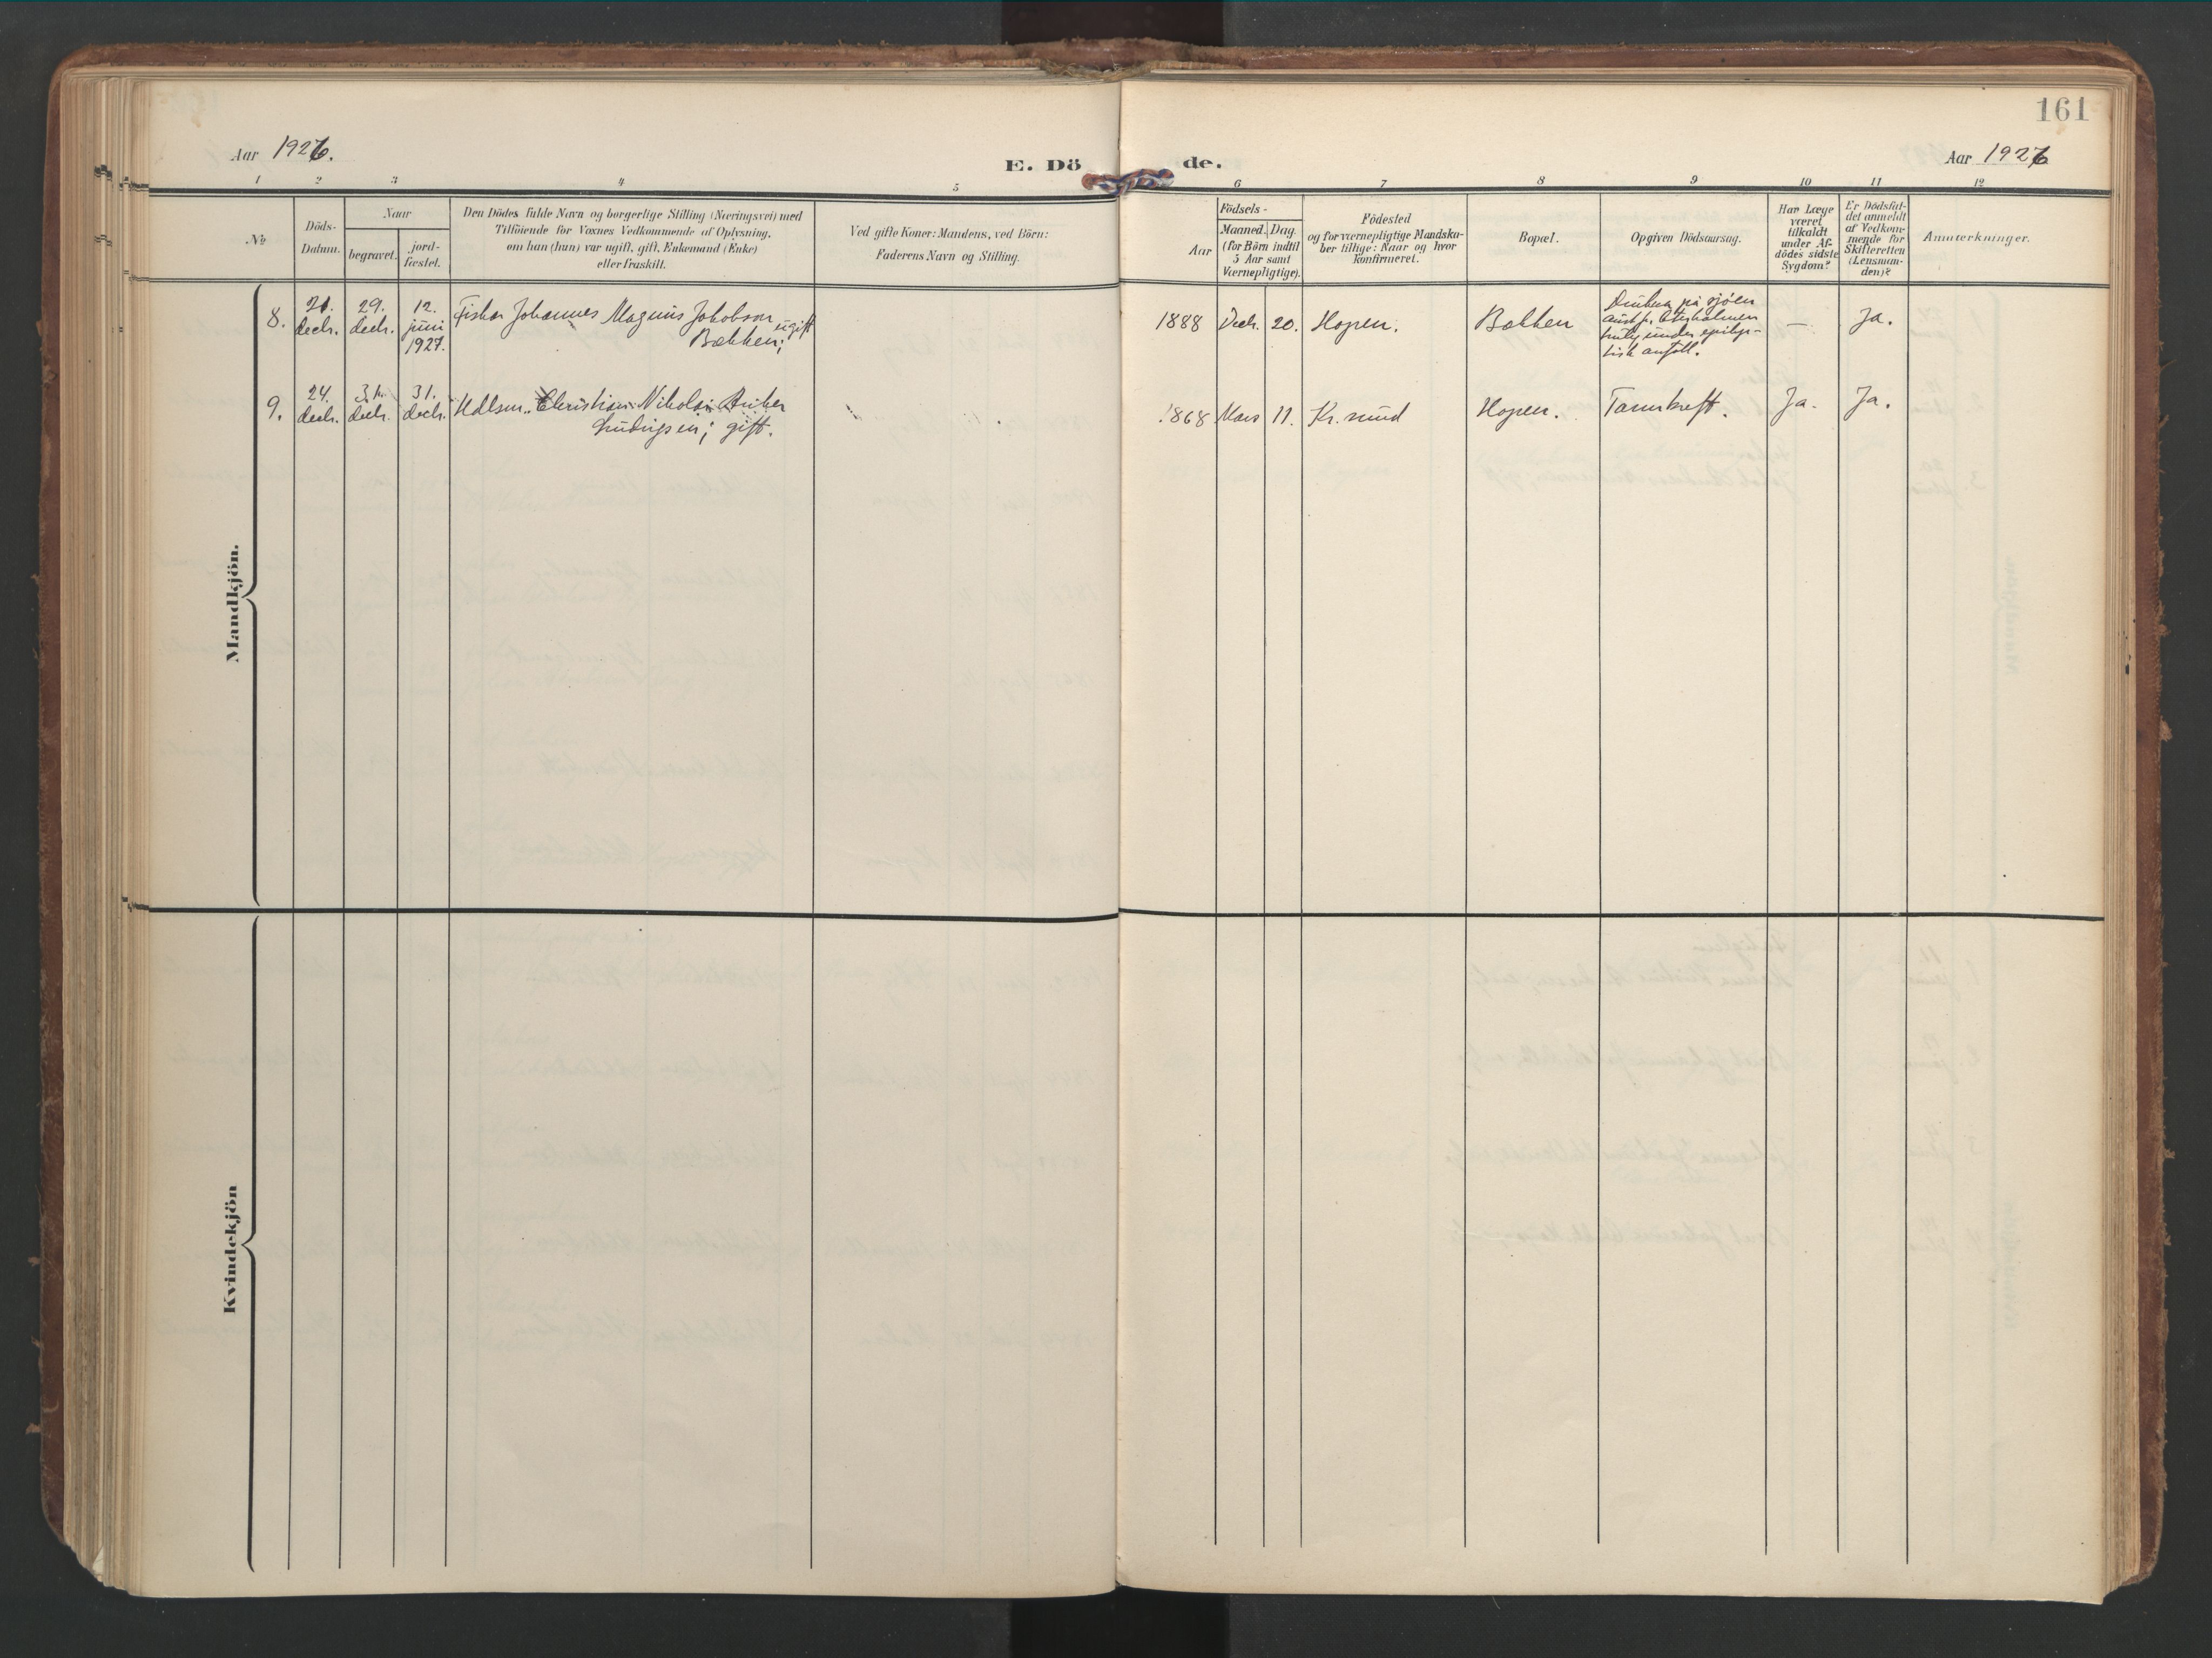 161
Aar 1926.
E. Dö de.
Aar 1926
1 2 3 4 5 6 7 8 9 10 11 12
No
Döds-
Datum.
Naar
begravet.
jord-
fæstet.
Den Dödes fulde Navn og borgerlige Stilling (Næringsvei) med
Tilföiende for Voxnes Vedkommende af Oplysning,
om han (hun) var ugift, gift, Enkemand (Enke)
eller fraskilt.
Ved gifte Koner: Mandens, ved Börn:
Faderens Navn og Stilling.
Födsels-
Aar
Maaned. Dag.
(for Börn indtil
5 Aar samt
Værnepligtige).
Födested
og for værnepligtige Mandska-
ber tillige: Naar og hvor
konfirmeret.
Bopæl.
Opgiven Dödsaarsag.
Har Læge
været
tilkaldt
under Af-
dödes sidste
Sygdom?
Er Dödsfal-
det anmeldt
af Vedkom-
mende for
Skifteretten
(Lensman-
den)?
Anmærkninger.
Mandkjön.
8.
21.
decb.
29.
decb.
12.
juni
1927.
Fisker Johannes Magnus Jakobson
Bækken; ugift
1888 Decb. 20. Hopen. Bækken
på sjøen
under epilep-
tisk anfall.
— Ja.
9.
24.
decb.
31.
decb.
31.
decb.
Christian Nikolai Anker
Ludvigsen; gift.
1868 Mars 11. Kr.sund Hopen. Tarmkreft. Ja. Ja.
Kvindekjön